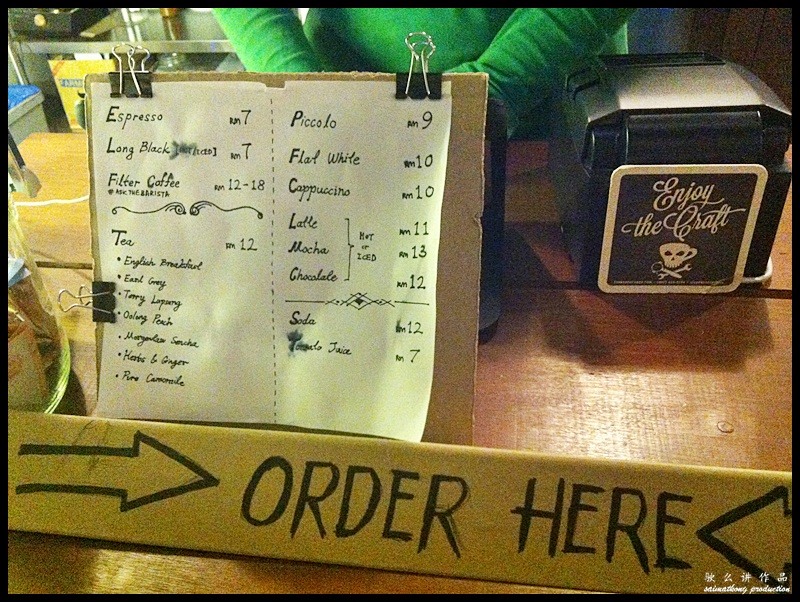 Espresso RM 7
Long Black RM 7
Filter Coffee RM 12-18
@ ASK THE BARISTA
Tea RM 12
• English Breakfast
• Earl Grey
• Terry Lapsang
• Oolong Peach
• Morgentau Sencha
• Herbs & Ginger
• Pure Camomile
Piccolo RM 9
Flat White RM 10
Cappuccino RM 10
Latte RM 11
Mocha RM 13
Chocolate RM 12
HOT
or
ICED
Soda RM 12
Tomato Juice RM 7
Enjoy
the Craft
ORDER HERE
驶么讲作品
saimatkong production